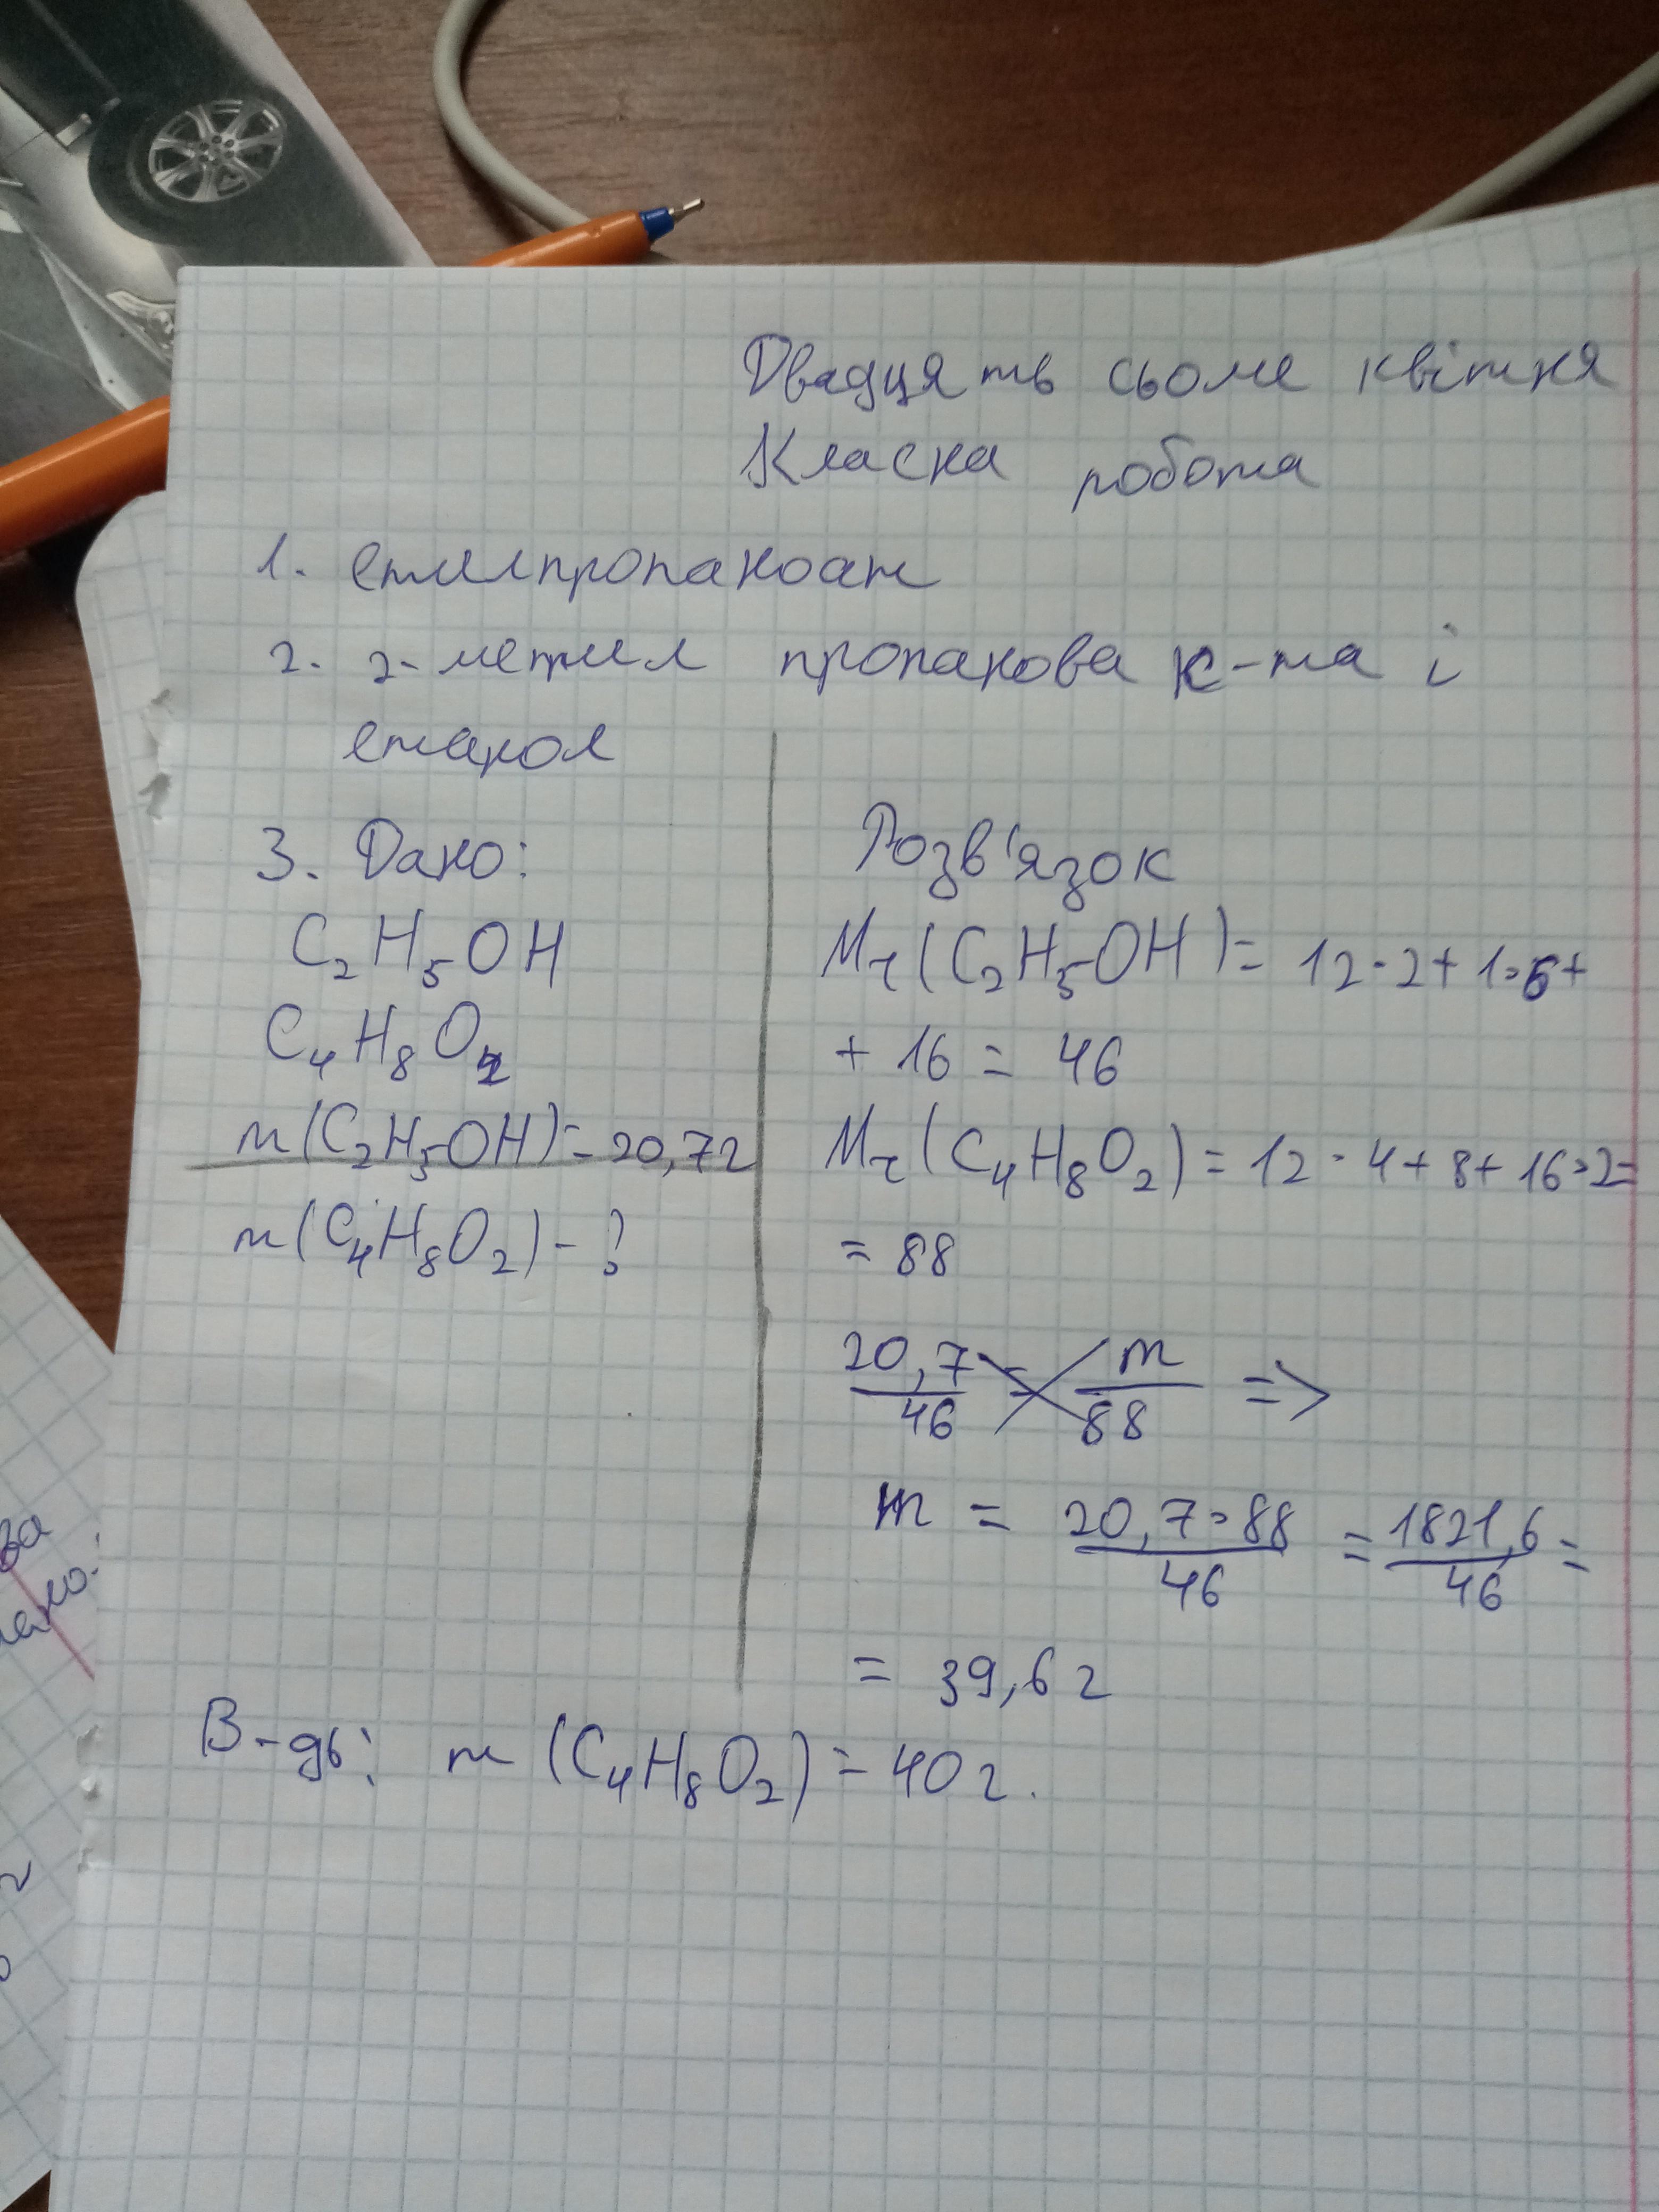 Двадцять сьоме квітня
Класна робота
1. етилпропаноат
2. 2-метил пропанова к-та і
етанол
3. Дано:
C₂H₅OH
C₄H₈O₂
m(C₂H₅OH)=20,7г
m(C₄H₈O₂)-?
Розв'язок
Mr(C₂H₅OH)= 12·2+1·6+
+ 16 = 46
Mr(C₄H₈O₂)=12·4+8+16·2=
= 88
20,7/46 = m/88 =>
m = 20,7·88/46 = 1821,6/46 =
= 39,6 г
В-дь: m (C₄H₈O₂)=40г.